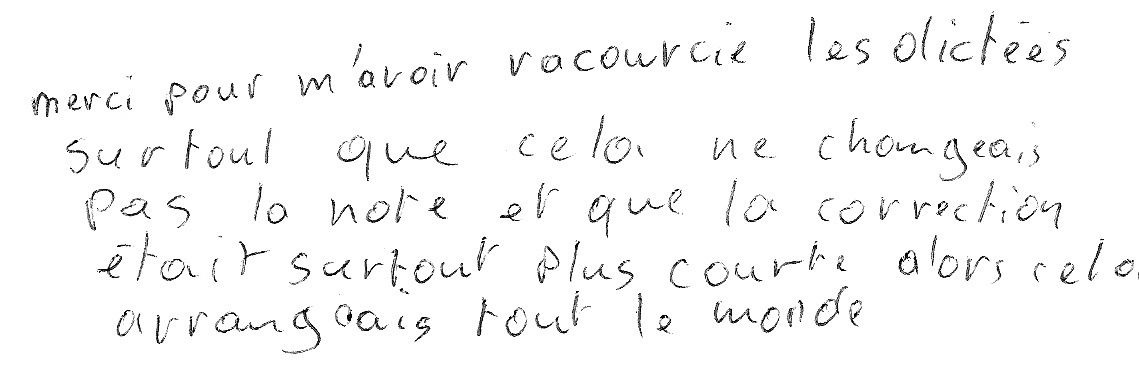 merci pour m'avoir racourcie les dictées
surtout que cela ne changeais
pas la note et que la correction
était surtout plus courte alors cela
arrangeais tout le monde